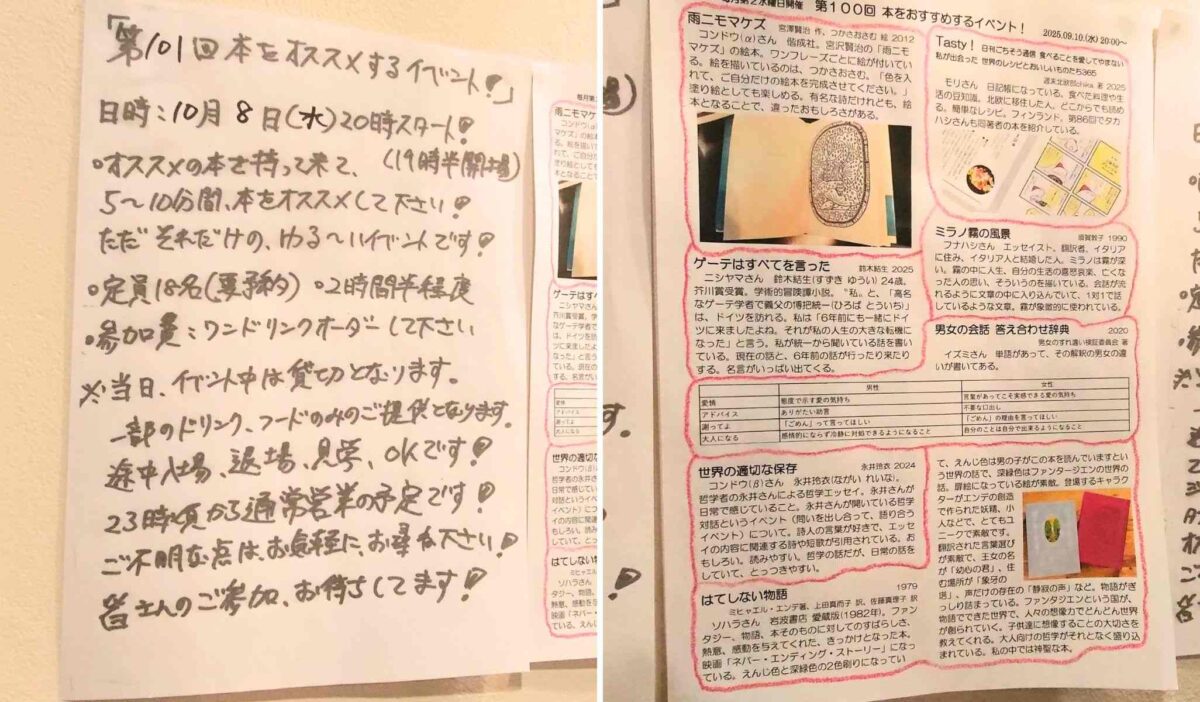 「第101回 本をオススメするイベント!」
日時:10月8日(水)20時スタート!
(19時半開場)
・オススメの本を持って来て、
5〜10分間、本をオススメして下さい!
ただそれだけの、ゆる〜いイベントです!
・定員18名(要予約) ・2時間半程度
・参加費:ワンドリンクオーダーして下さい
※当日、イベント中は貸切となります。
一部のドリンク、フードのみのご提供となります。
途中入場、退場、見学、OKです!
23時頃から通常営業の予定です!
ご不明な点は、お気軽に、お尋ね下さい!
皆さんのご参加、お待ちしてます!
毎月第2水曜日開催 第100回 本をおすすめするイベント!
2025.09.10.(水) 20:00〜
雨ニモマケズ 宮澤賢治 作、つかさおさむ 絵 2012
コンドウ(α)さん 偕成社。宮沢賢治の「雨ニモ
マケズ」の絵本。ワンフレーズごとに絵が付いてい
る。絵を描いているのは、つかさおさむ。「色を入
れて、ご自分だけの絵本を完成させてください。」
塗り絵としても楽しめる。有名な詩だけれども、絵
本となることで、違ったおもしろさがある。
ゲーテはすべてを言った 鈴木結生 2025
ニシヤマさん 鈴木結生(すずき ゆうい) 24歳。
芥川賞受賞。学術的冒険譚小説。“私”と、「高名
なゲーテ学者で義父の博把統一(ひろば とういち)」
は、ドイツを訪れる。私は「6年前にも一緒にドイ
ツに来ましたよね。それが私の人生の大きな転機に
なった」と言う。私が統一から聞いている話を書い
ている。現在の話と、6年前の話が行ったり来たり
する。名言がいっぱい出てくる。
Tasty! 日刊ごちそう通信 食べることを愛してやまない
私が出会った 世界のレシピとおいしいものたち365
週末北欧部chika 著 2025
モリさん 日記帳になっている。食べた料理や生
活の豆知識。北欧に移住した人。どこからでも読め
る。簡単なレシピ。フィンランド。第86回でタカ
ハシさんも同著者の本を紹介している。
ミラノ霧の風景 須賀敦子 1990
フナハシさん エッセイスト、翻訳者、イタリア
に住み、イタリア人と結婚した人。ミラノは霧が深
い。霧の中に人生、自分の生活の喜怒哀楽、亡くな
った人の思い、そういうのを描いている。会話が流
れるように文章の中に入り込んでいて、1対1で話
しているような文章。霧が象徴的に使われている。
男女の会話 答え合わせ辞典 2020
男女のすれ違い検証委員会 著
イズミさん 単語があって、その解釈の男女の違
いが書いてある。
男性 女性
愛情 態度で示す愛の気持ち 言葉があってこそ実感できる愛の気持ち
アドバイス ありがたい助言 不要な口出し
謝ってよ 「ごめん」って言ってほしい 「ごめん」の理由を言ってほしい
大人になる 感情的にならず冷静に対処できるようになること 自分のことは自分で出来るようになること
世界の適切な保存 永井玲衣 2024
コンドウ(β)さん 永井玲衣(ながい れいな)。
哲学者の永井さんによる哲学エッセイ。永井さんが
日常で感じていること。永井さんが開いている哲学
対話というイベント(問いを出し合って、語り合う
イベント)について。詩人の言葉が好きで、エッセ
イの内容に関連する詩や短歌が引用されている。お
もしろい。読みやすい。哲学の話だが、日常の話を
していて、とっつきやすい。
はてしない物語 1979
ミヒャエル・エンデ著、上田真而子 訳、佐藤真理子 訳
ソハラさん 岩波書店 愛蔵版(1982年)。ファン
タジー、物語、本そのものに対してのすばらしさ、
熱意、感動を与えてくれた、きっかけとなった本。
映画「ネバー・エンディング・ストーリー」になっ
ている。えんじ色と深緑色の2色刷りになってい
て、えんじ色は男の子がこの本を読んでいますとい
う世界の話で、深緑色はファンタージエンの世界の
話。扉絵になっている絵が素敵。登場するキャラク
ターがエンデの創造
で作られた妖精、小
人などで、とてもユ
ニークで素敵です。
翻訳された言葉選び
が素敵で、王女の名
が「幼心の君」、住
む場所が「象牙の
塔」、声だけの存在の「静寂の声」など。物語がぎ
っしり詰まっている。ファンタジエンという国が、
物語でできた世界で、人々の想像力でどんどん世界
が創られていく。子供達に想像することの大切さを
教えてくれる。大人向けの哲学がそれとなく盛り込
まれている。私の中では神聖な本。